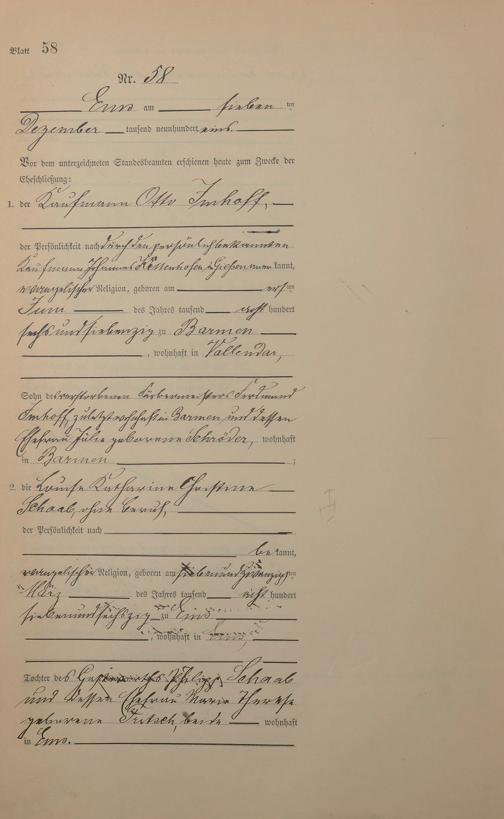 Blatt 58
Nr. 58
Ems am sieben ten
Dezember tausend neunhundert eins
Vor dem unterzeichneten Standesbeamten erschienen heute zum Zwecke der
Eheschließung:
1. der Kaufmann Otto Imhoff,
der Persönlichkeit nach durch den persönlich bekannten
Kaufmann Johannes kannt,
evangelischer Religion, geboren am ersten
Juni des Jahres tausend acht hundert
sechsundsiebenzig zu Barmen
, wohnhaft in Vallendar,
Sohn des verstorbenen Färbermeisters Ferdinand
Imhoff, zuletzt wohnhaft in Barmen und dessen
Ehefrau Julie geborene Schröder, wohnhaft
in Barmen ;
2. die Louise Katharine Christine
Schaab, ohne Beruf,
der Persönlichkeit nach
be kannt,
evangelischer Religion, geboren am siebenundzwanzigsten
März des Jahres tausend acht hundert
siebenundsechszig zu Ems
, wohnhaft in Ems,
Tochter des Philipp Schaab
und dessen Ehefrau Marie Therese
geborene Fritsch, beide wohnhaft
in Ems.